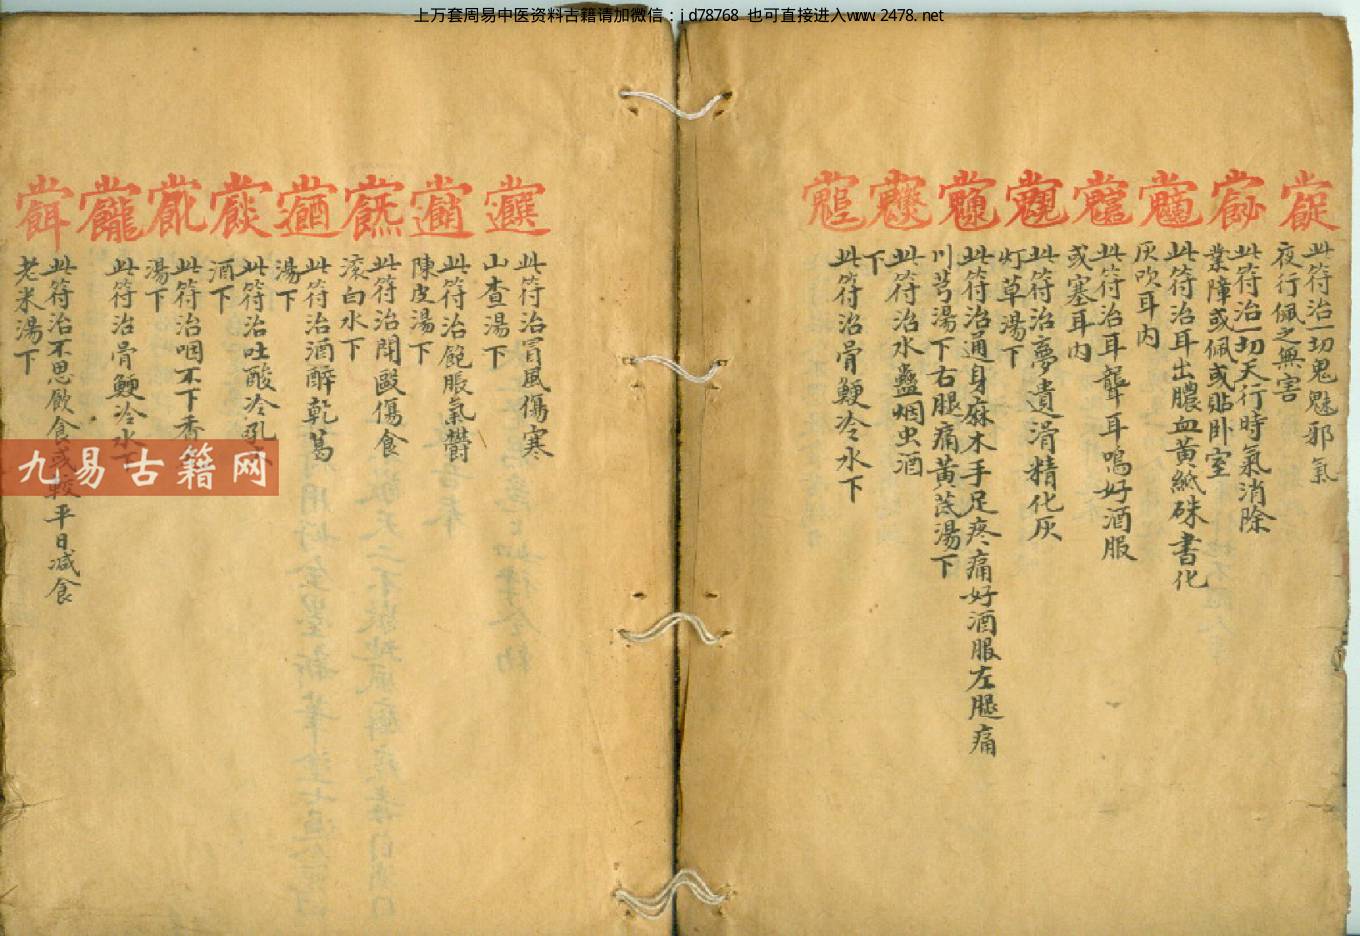 上万套周易中医资料古籍请加微信：jd78768 也可直接进入www.2478.net
此符治一切鬼魅邪氣
夜行佩之無害
此符治一切天行時氣消除
業障或佩或貼卧室
此符治耳出膿血黄紙硃書化
灰吹耳内
此符治耳聾耳鳴好酒服
或塞耳内
此符治夢遺滑精化灰
灯草湯下
此符治通身麻木手足疼痛好酒服左腿痛
川芎湯下右腿痛黄茋湯下
此符治水蠱烟虫酒
下
此符治骨鯁冷水下
此符治冒風傷寒
山查湯下
此符治飽脹氣鬱
陳皮湯下
此符治鬪毆傷食
滚白水下
此符治酒醉乾葛
湯下
此符治吐酸冷乳
酒下
此符治咽不下香
湯下
此符治骨鯁冷水下
此符治不思飲食或較平日減食
老米湯下
九易古籍网